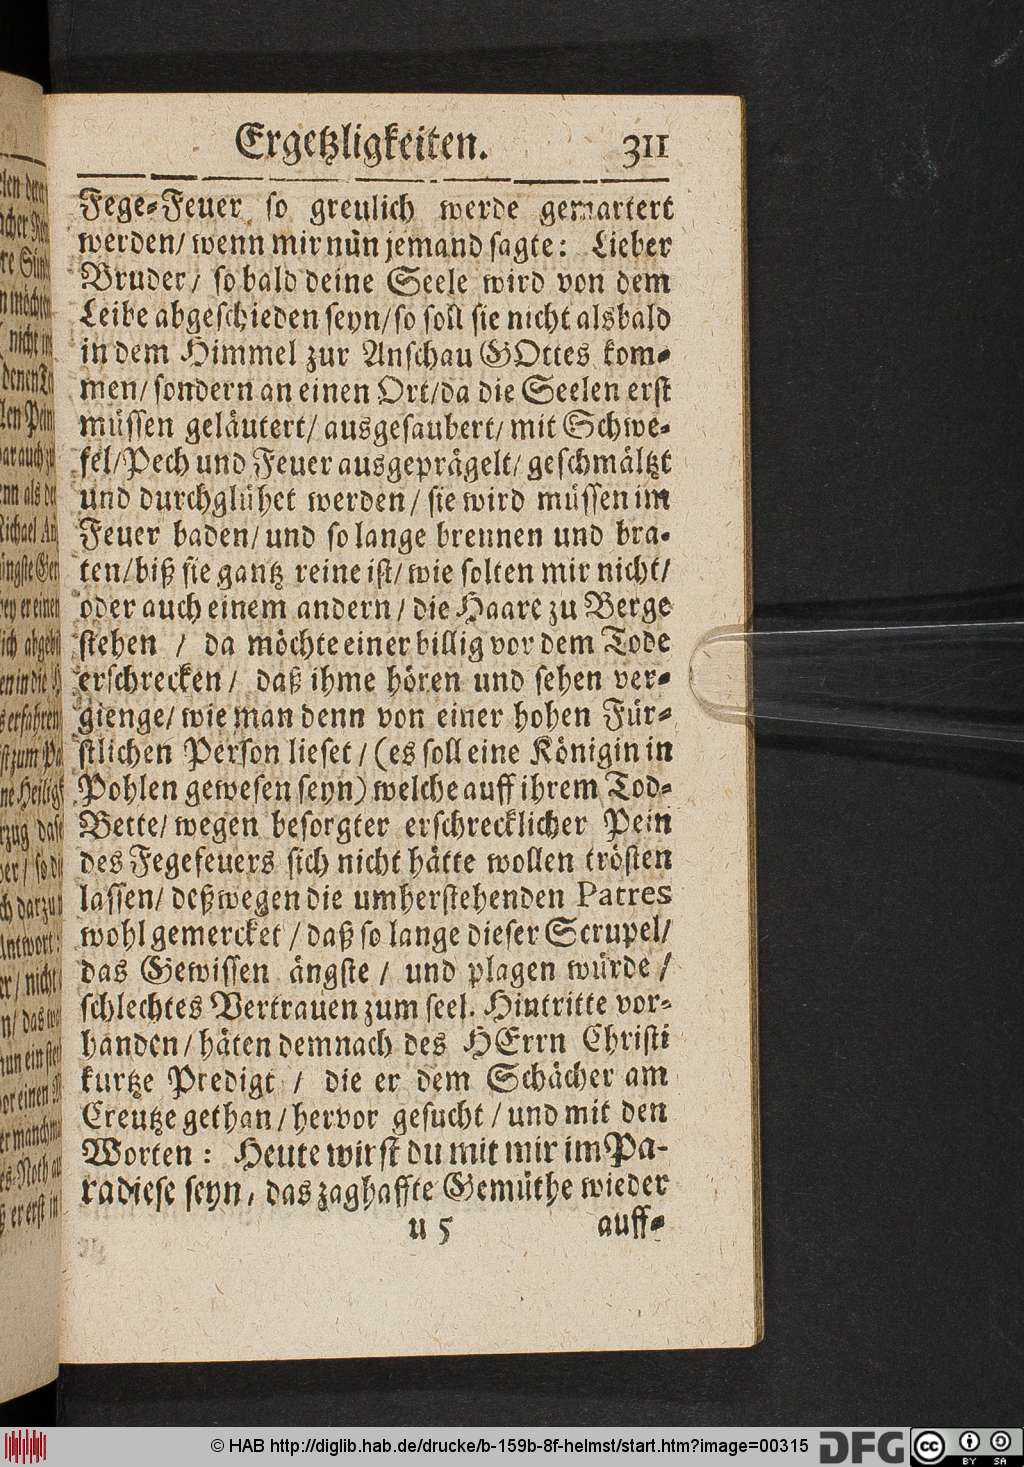 Ergetzligkeiten. 311
Fege-Feuer so greulich werde gemartert
werden/ wenn mir nun jemand sagte: Lieber
Bruder/ so bald deine Seele wird von dem
Leibe abgeschieden seyn/ so soll sie nicht alsbald
in dem Himmel zur Anschau GOttes kom-
men/ sondern an einen Ort/ da die Seelen erst
müssen geläutert/ ausgesaubert/ mit Schwe-
fel/ Pech und Feuer ausgeprägelt/ geschmältzt
und durchglühet werden/ sie wird müssen im
Feuer baden/ und so lange brennen und bra-
ten/ biß sie gantz reine ist/ wie solten mir nicht/
oder auch einem andern/ die Haare zu Berge
stehen / da möchte einer billig vor dem Tode
erschrecken/ daß ihme hören und sehen ver-
gienge/ wie man denn von einer hohen Für-
stlichen Person lieset/ (es soll eine Königin in
Pohlen gewesen seyn) welche auff ihrem Tod-
Bette/ wegen besorgter erschrecklicher Pein
des Fegefeuers sich nicht hätte wollen trösten
lassen/ deßwegen die umherstehenden Patres
wohl gemercket / daß so lange dieser Scrupel/
das Gewissen ängste / und plagen würde /
schlechtes Vertrauen zum seel. Hintritte vor-
handen/ häten demnach des HErrn Christi
kurtze Predigt / die er dem Schächer am
Creutze gethan/ hervor gesucht / und mit den
Worten: Heute wirst du mit mir im Pa-
radiese seyn, das zaghaffte Gemüthe wieder
u 5 auff-
© HAB http://diglib.hab.de/drucke/b-159b-8f-helmst/start.htm?image=00315
DFG
cc BY SA